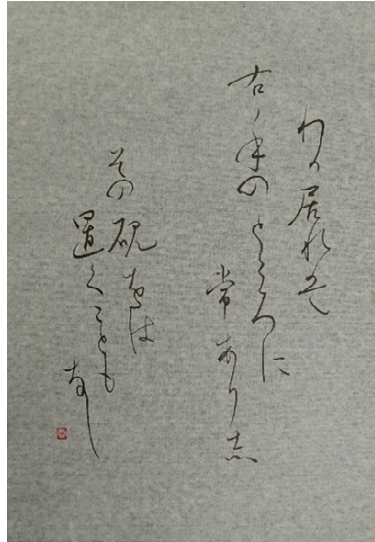 わか居れは
右ノ手のところに
常あり志
その硯をは
置くことも
なし